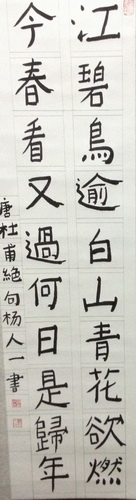 江碧鳥逾白山青花欲燃
今春看又過何日是歸年
唐杜甫絕句杨人一書